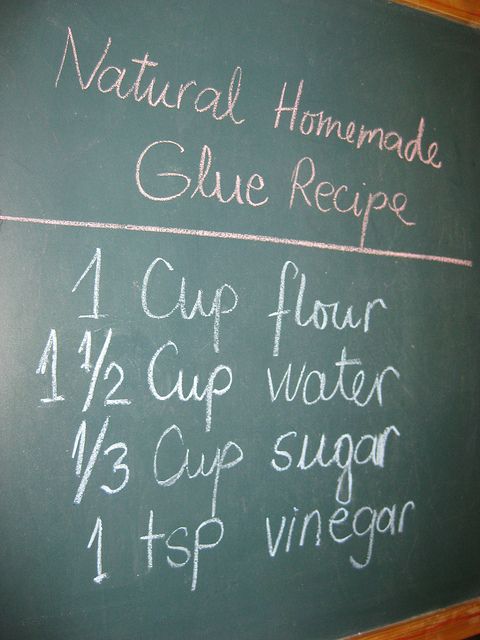 Natural Homemade
Glue Recipe
1 Cup flour
1 1/2 Cup water
1/3 Cup sugar
1 tsp vinegar